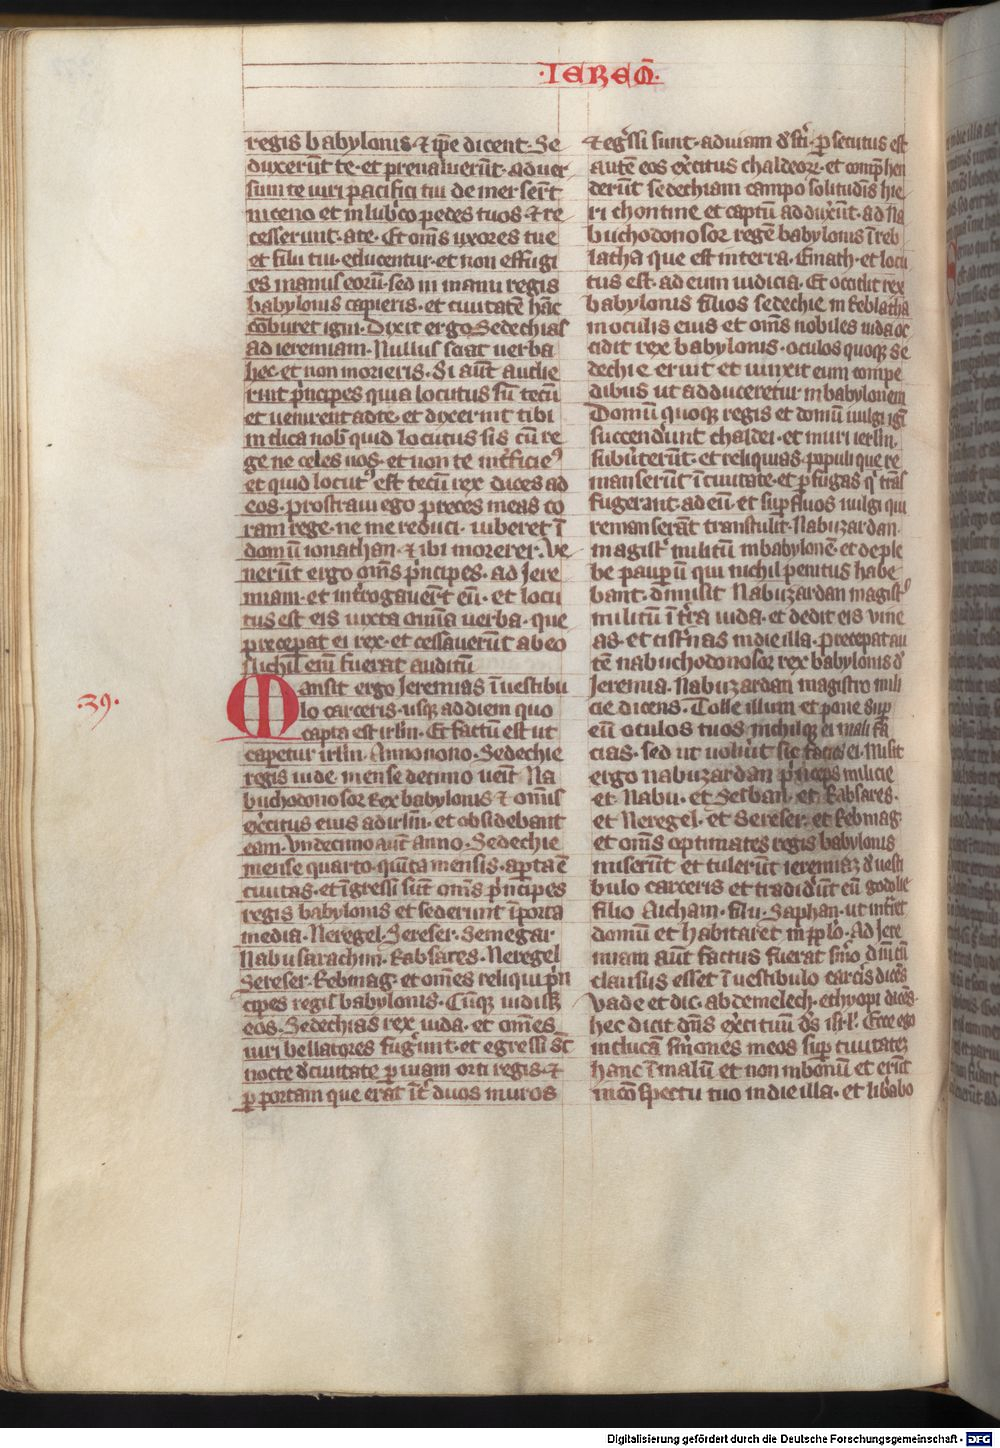 ·IEREM̄·
regis babylonis ⁊ ip̄e dicent· Se
duxer̄ut te· et preualuer̄ut· aduer
sum te uiri pacifici tui demerser̄t
in ceno et in lub'co pedes tuos· ⁊ re
cesserunt· ate· Et om̄s uxores tue
et filii tui· educentur· et non effugi
es manus eoru̅· sed in manu regis
babylonis capieris· et ciuitate̅ ha̅c
co̅buret igni· Dixit ergo Sedechias
ad ieremiam· Nullus sciat uerba
hec· et non morieris· Si aut̅ audie
rint p'ncipes quia locutus su̅ tecu̅
et uenirent adte· et dixerint tibi
indica nob̅ quid locutus sis cu̅ re
ge ne celes nos· et non te int'ficie⁹
et quid locut⁹ est tecu̅ rex dices ad
eos· prostraui ego preces meas co
ram rege· ne me reduci· iuberet i̅
domu̅ ionathan· ⁊ ibi morerer· Ve
neru̅t ergo om̄s p'ncipes· ad Jere
miam· et int'rogauer̅t eu̅· et locu
tus est eis iuxta omnia uerba· que
preceperat ei rex· et cessauer̅ut ab eo
Nichil eni̅ fuerat auditu̅
39·
Mansit ergo Jeremias i̅ uestibu
lo carceris· usq; ad diem quo
capta est irl̅m· Et factu̅ est ut
caperetur irl̅m· Anno nono· Sedechie
regis iude· mense decimo ueit Na
buchodonosor Rex babylonis ⁊ omnis
ex'citus eius ad irl̅m· et obsidebant
eam· Vndecimo aut̅ anno· Sedechie
mense quarto· qui̅ta mensis· ap̲ta e̅
ciuitas· et i̅gressi su̅t om̄s p'ncipes
regis babylonis et sederunt i̅ porta
media· Neregel· Sereser· Semegar
Nabusarachim· Rabsares· Neregel
Sereser· Rebmag· et om̅es reliqui p'n
cipes regis babylonis· Cu̅q; uidiss;
eos· Sedechias rex iuda· et om̅es
uiri bellatores fug'unt· et egressi su̅t
nocte d' ciuitate p̲ uiam orti regis· ⁊
p̲ portam que erat i̅t' duos muros
⁊ eg'ssi sunt· ad uiam d's̅ti· p̲secutus est
aute̅ eos ex'citus chaldeoꝝ· et comp'hen
der̅ut sedechiam campo solitudi̅s hie
richontine et captu̅ adduxer̅ut· ad Na
buchodonosor rege̅ babylonis i̅ reb
latha que est in terra· Emath· et locu
tus est· ad eum iudicia· Et occidit rex
babylonis filios sedechie in Reblatha
in oculis eius et om̄s nobiles iuda oc
cidit rex babylonis· oculos quoq; se
dechie eruit et uinxit eum compe
dibus ut adduceretur in babylonem
Domu̅ quoq; regis et domu̅ uulgi ig̅i
succender̅unt chaldei· et muri ierl̅m·
subu'ter̅ut· et reliquias· populi que re
manserunt i̅ ciuitate· et p̲fugas q' tra̅s
fugerant· ad eu̅· et sup̲fluos uulgi qui
remanser̅at transtulit· Nabuzardan·
magist' militu̅ in babylone̅· et de ple
be paup̲u̅ qui nichil penitus habe
bant· dimisit Nabuzardan magist⁹
militu̅ i̅ t'ra iuda· et dedit eis vine
as· et cist'nas in die illa· preceperat au
te̅ nabuchodonosor rex babylonis d'
Jeremia· Nabuzardan magistro mili
cie dicens· Tolle illum et pone sup̲
eu̅ oculos tuos nichilq; ei mali fa
cias· sed ut uolu'it sic facies ei· Misit
ergo nabuzardan p'nceps milicie
et Nabu· et Sesban· et Rabsares·
et Neregel· et Sereser· et Rebmag·
et om̄s optimates regis babylonis
miser̅ut et tuler̅ut ieremiaʒ d' uesti
bulo carceris et tradider̅ut eu̅ godolie
filio Aicham· filii· Saphan· ut int'ret
domu̅ et habitaret in pp̅lo· Ad Jere
miam aut̅ factus fuerat s'mo d̅ni cu̅
clausus esset i̅ uestibulo carc'is dice̅s
Vade et dic· abdemelech· ethyopi dice̅s·
hec dicit dn̄s ex'cituu̅ d's isr̅l· Ecce ego
inducam s'mones meos sup̲ ciuitateʒ
hanc i̅ malu̅ et non in bonu̅ et eru̅t
in co̅spectu tuo in die illa· et lib'abo
Digitalisierung gefördert durch die Deutsche Forschungsgemeinschaft - DFG